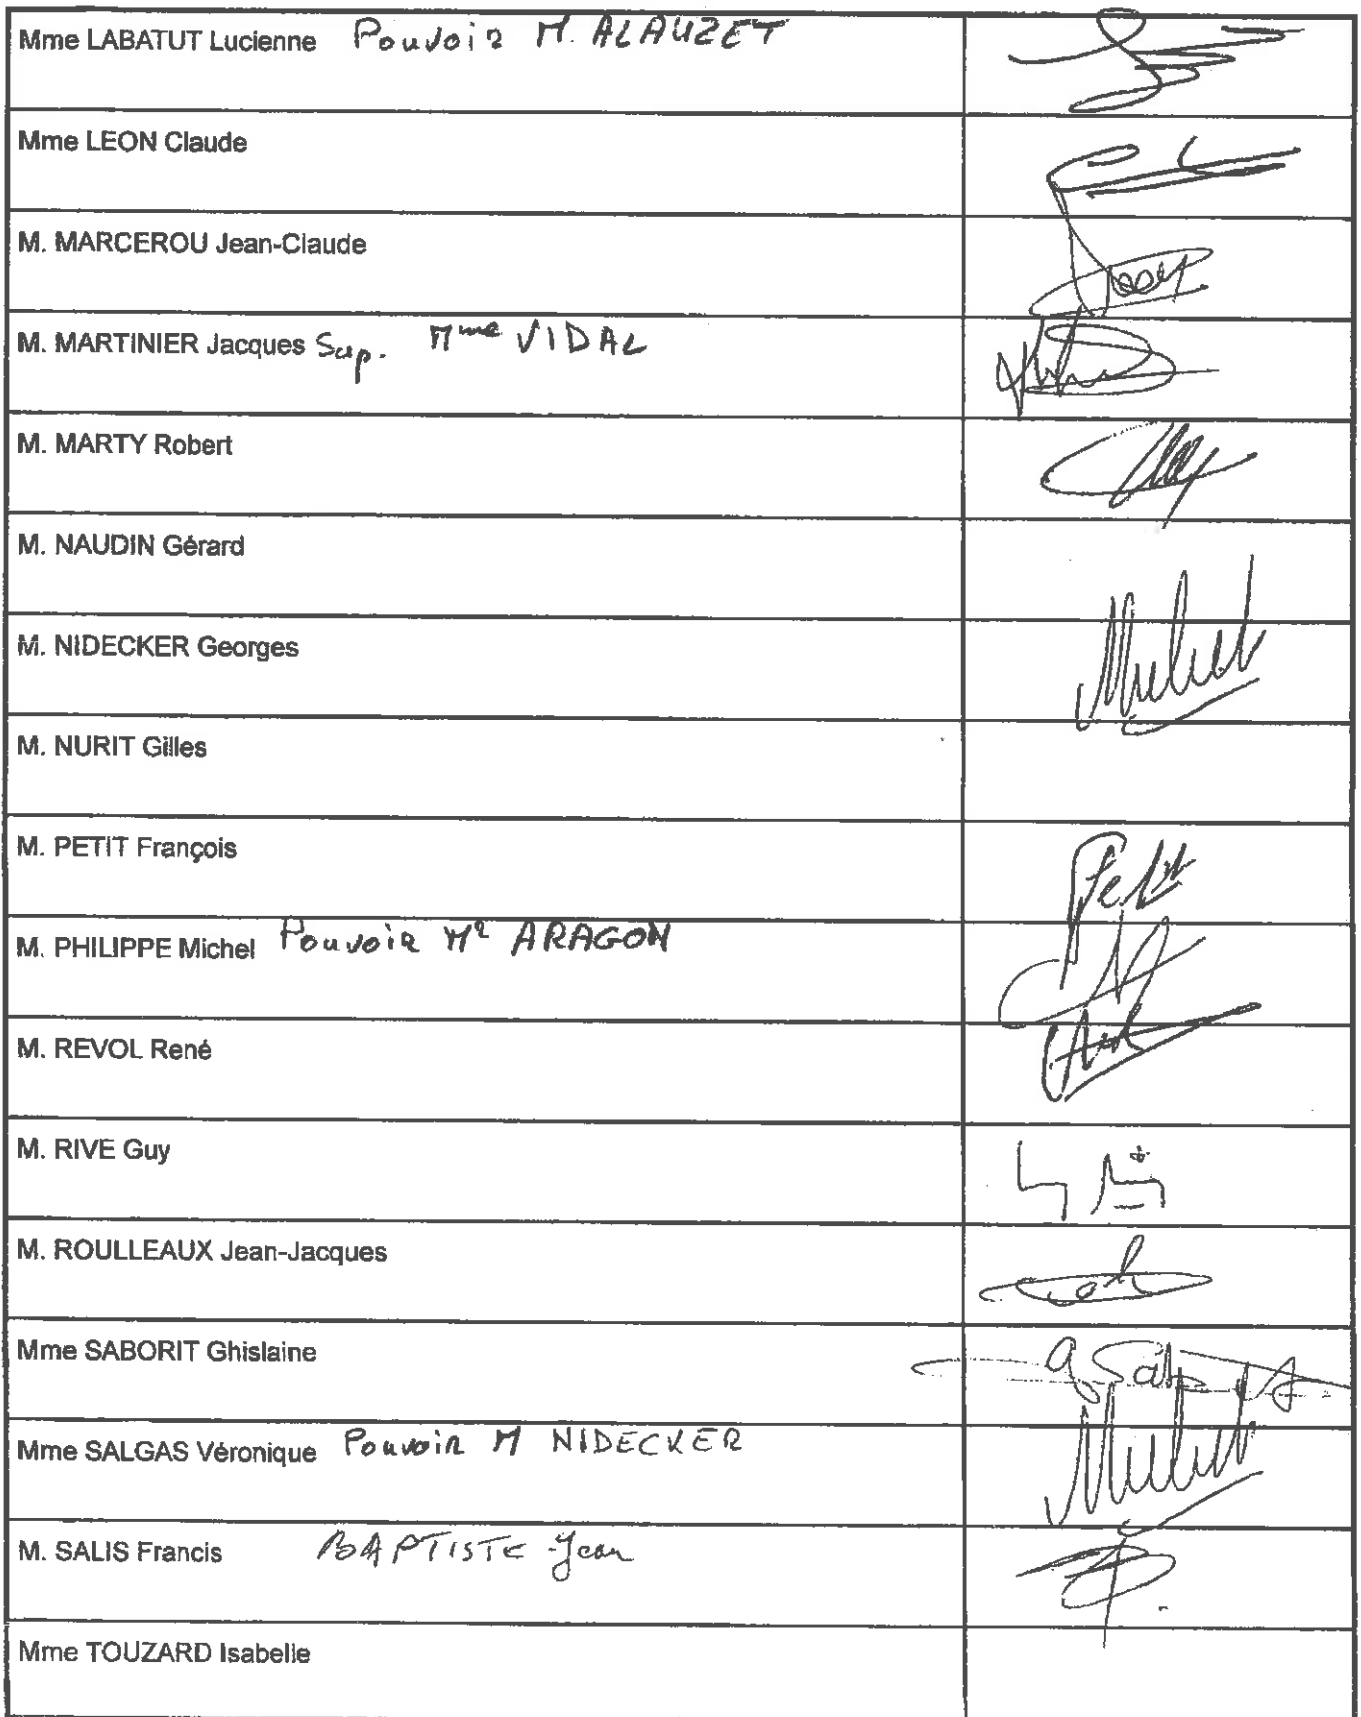 Mme LABATUT Lucienne Pouvoir M. ALAUZET
Mme LEON Claude
M. MARCEROU Jean-Claude
M. MARTINIER Jacques Sup. Mme VIDAL
M. MARTY Robert
M. NAUDIN Gérard
M. NIDECKER Georges
M. NURIT Gilles
M. PETIT François
Petit
M. PHILIPPE Michel Pouvoir Mr ARAGON
M. REVOL René
M. RIVE Guy
M. ROULLEAUX Jean-Jacques
Mme SABORIT Ghislaine
Mme SALGAS Véronique Pouvoir M NIDECKER
M. SALIS Francis BAPTISTE Jean
Mme TOUZARD Isabelle